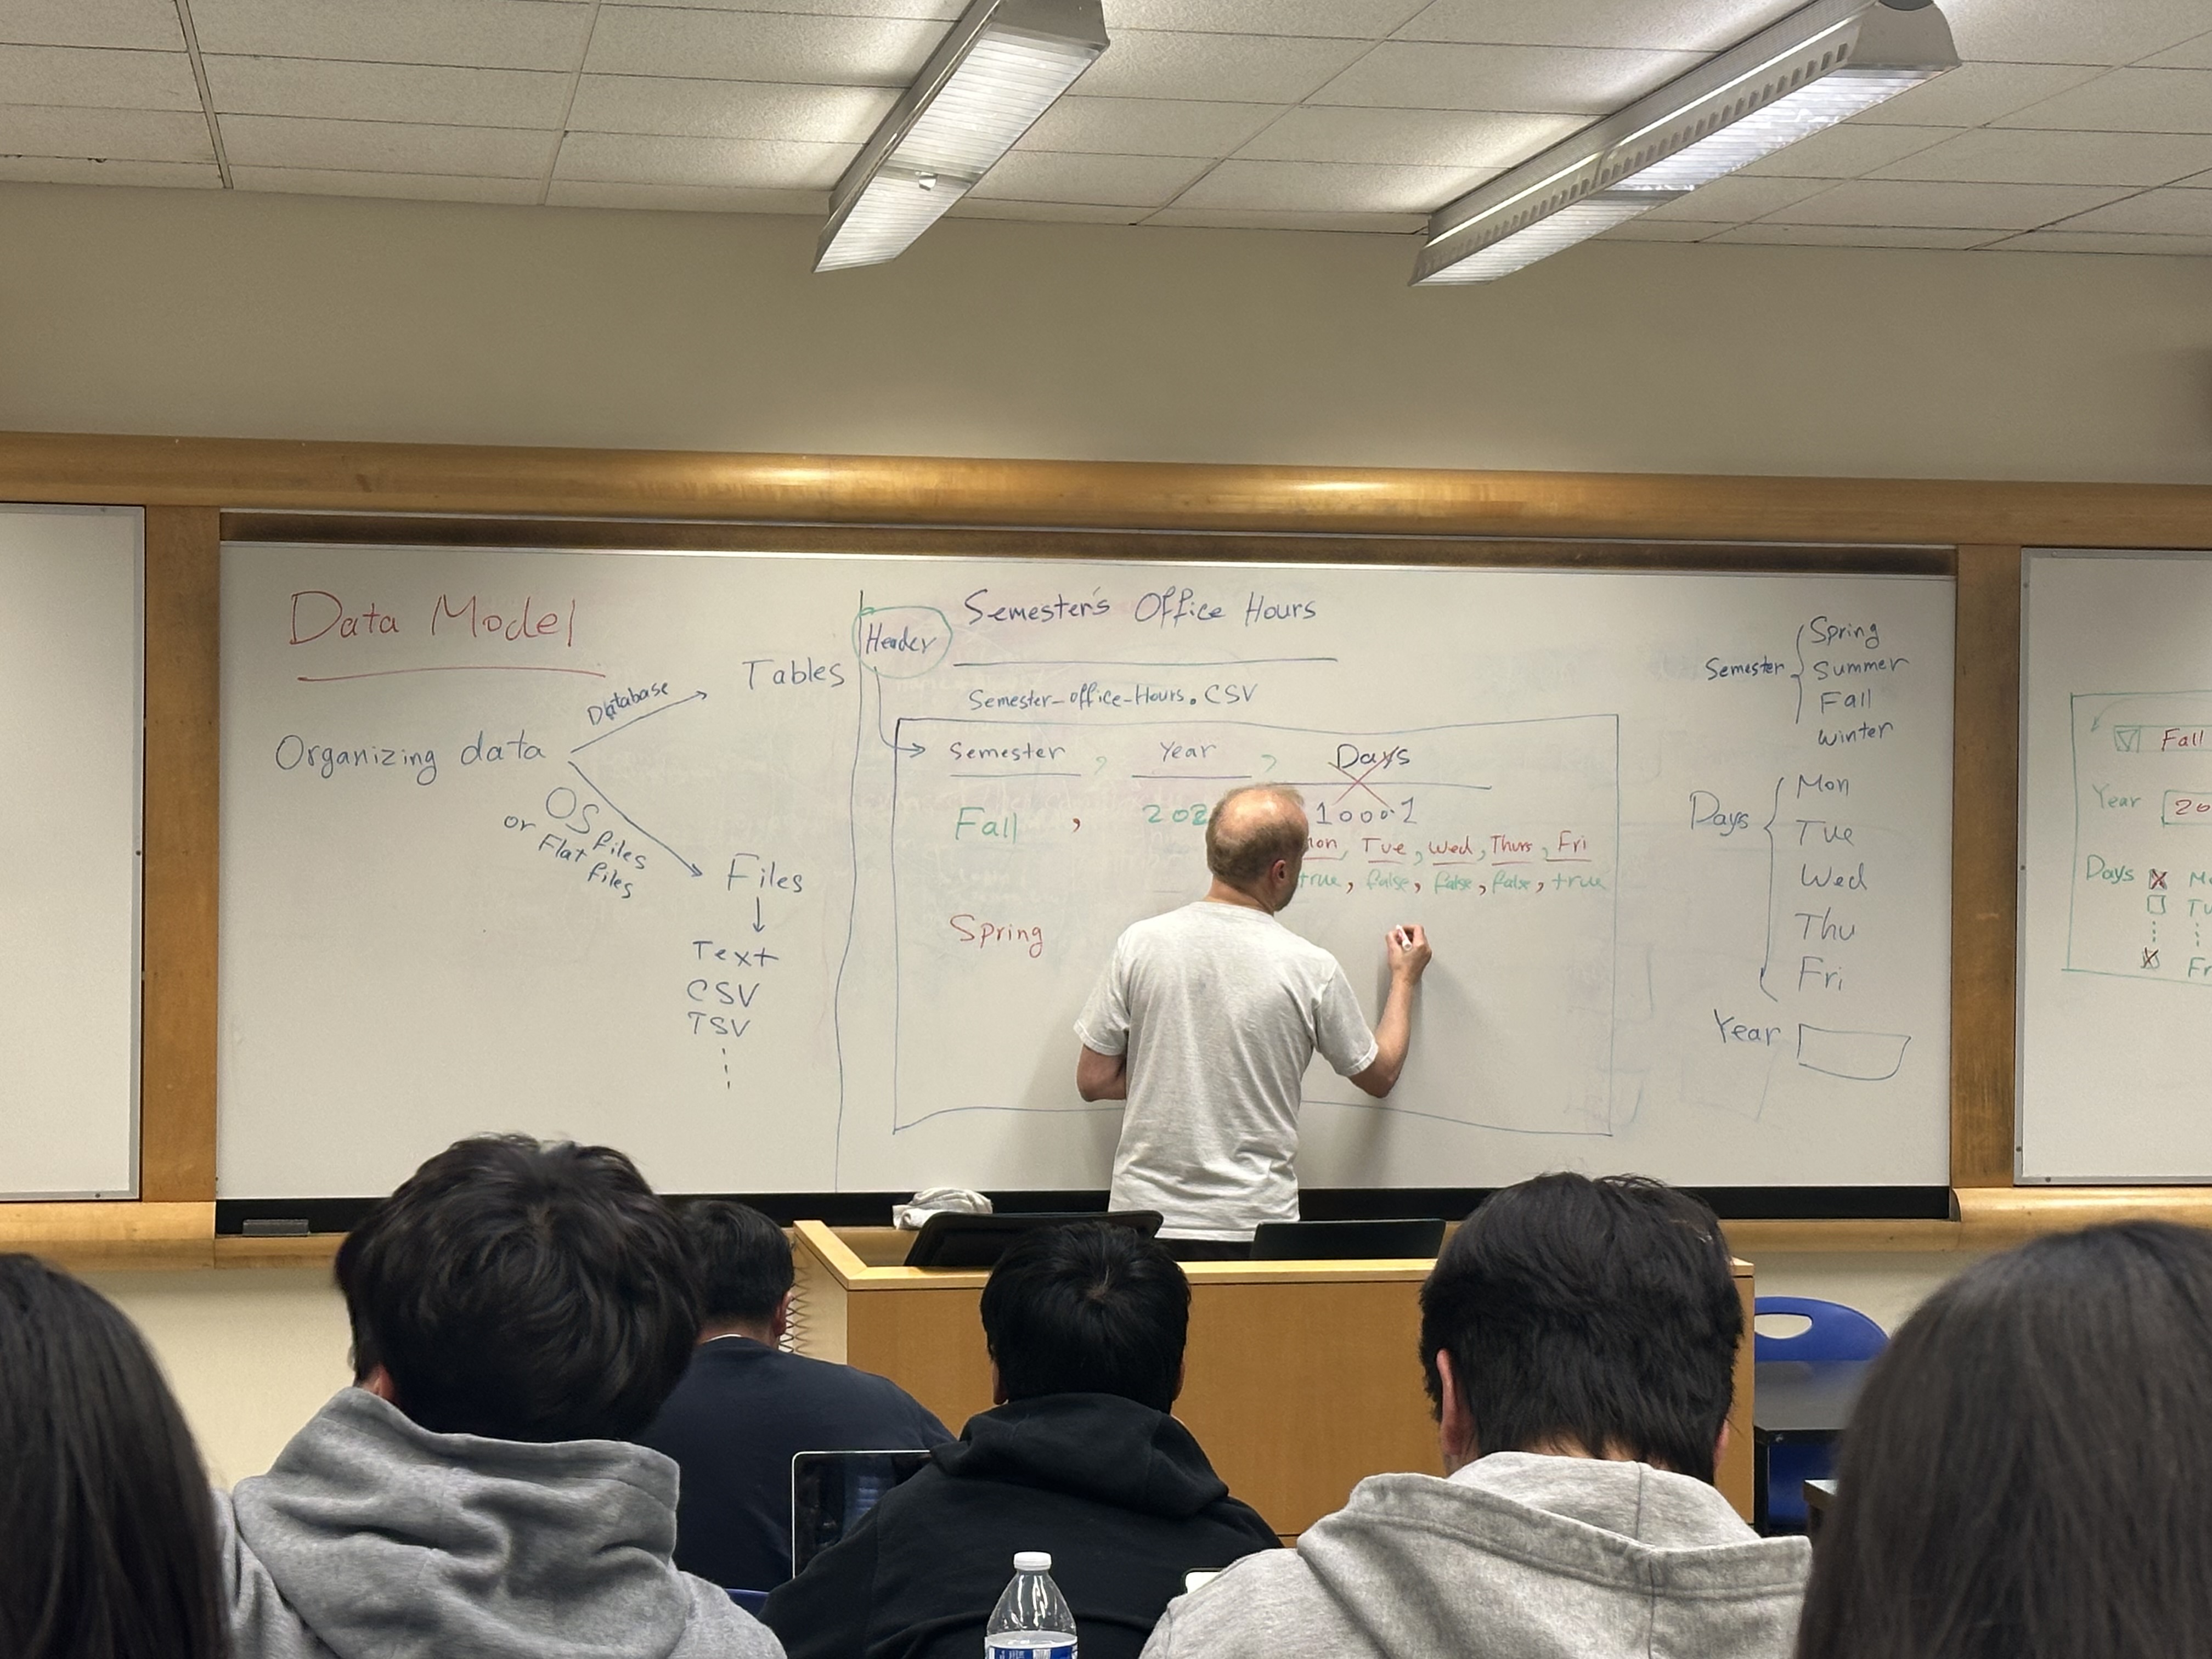 Data Model
Organizing data
Database
Tables
OS files
or Flat
files
Files
Text
CSV
TSV
Header
Semester's Office Hours
Semester-office-Hours.CSV
Semester , Year , Days
Fall , 202 10001
Mon, Tue, Wed, Thurs, Fri
true, false, false, false, true
Spring
Semester
Spring
Summer
Fall
Winter
Days
Mon
Tue
Wed
Thu
Fri
Year
Fall
Year 20
Days